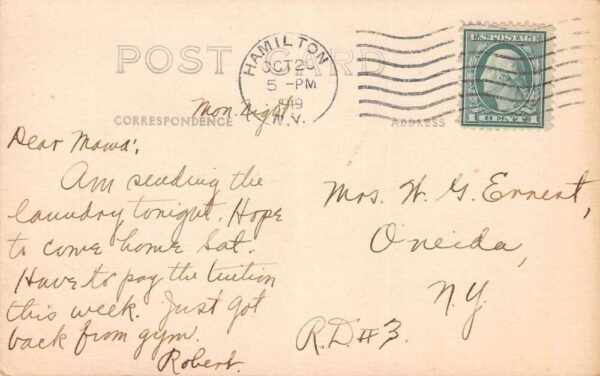 POST CARD
HAMILTON
OCT 29
5 - PM
1919
N.Y.
U.S. POSTAGE
1 CENT 1
CORRESPONDENCE
ADDRESS
Mon. Night
Dear Mama:
Am sending the
laundry tonight. Hope
to come home Sat.
Have to pay the tuition
this week. Just got
back from gym.
Robert.
Mrs. W. G. Ernest,
Oneida,
N.Y.
R.D.#3.